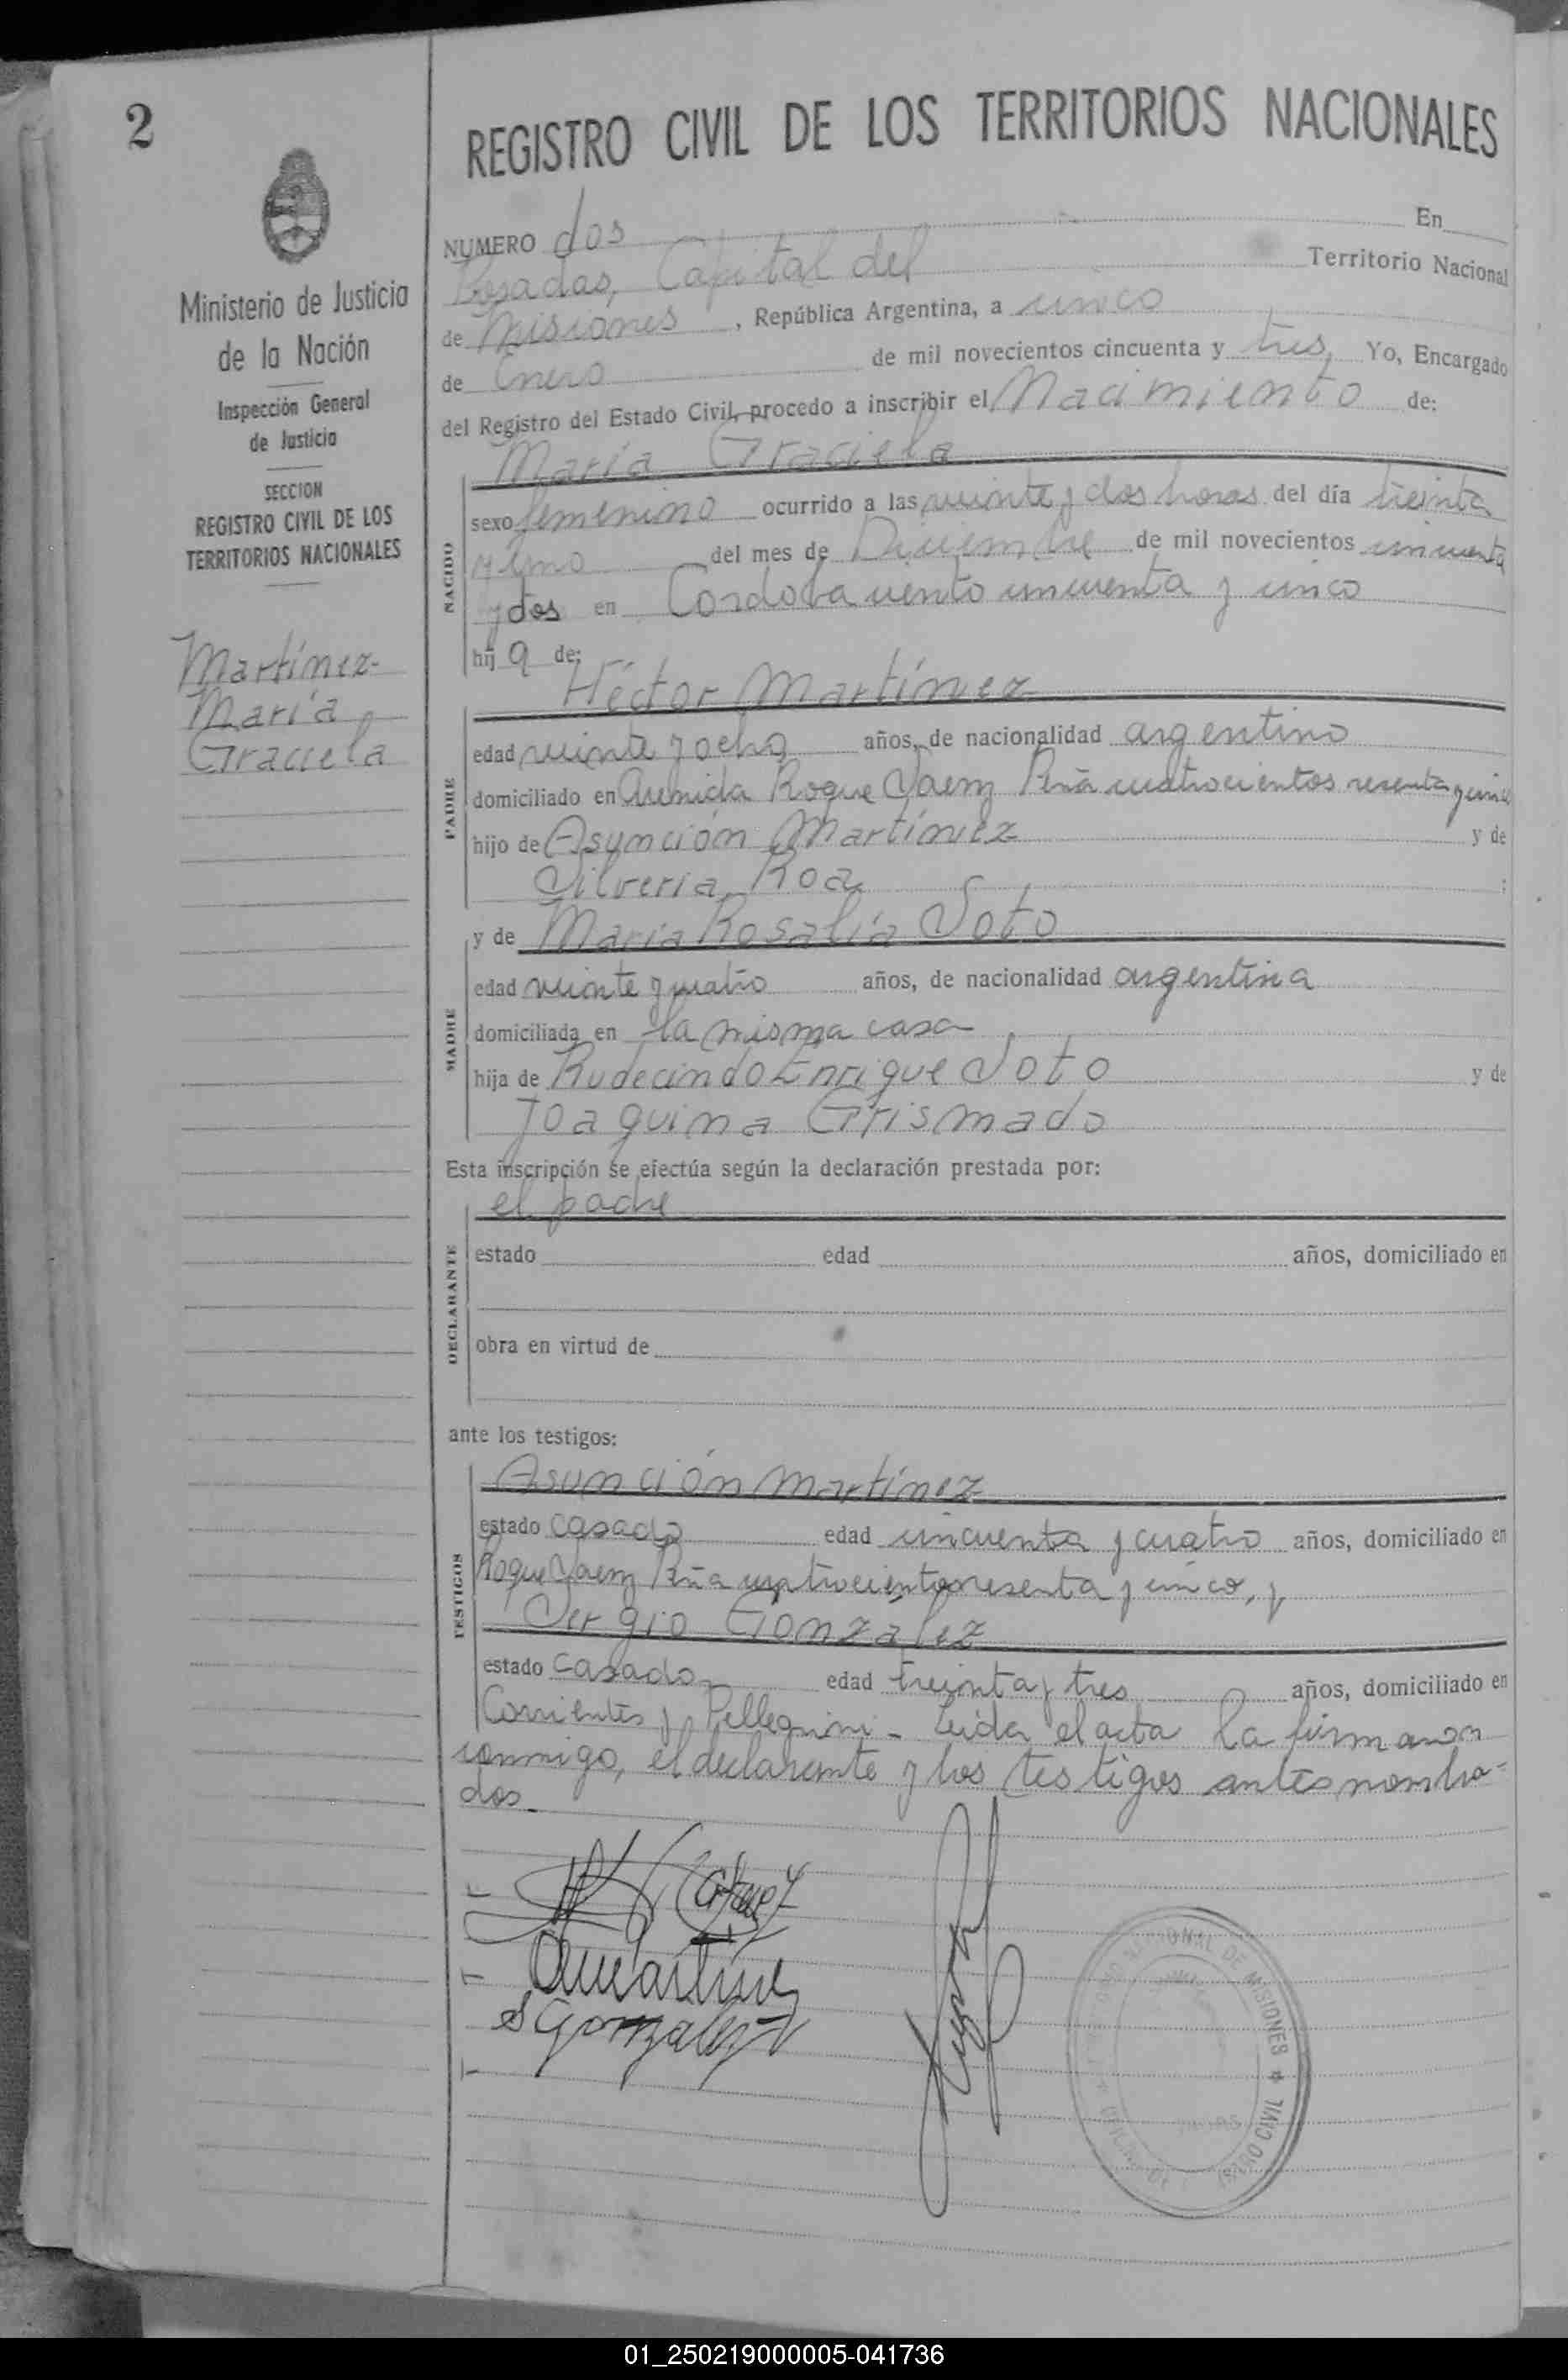 2
REGISTRO CIVIL DE LOS TERRITORIOS NACIONALES
Ministerio de Justicia
de la Nación
Inspección General
de Justicia
SECCION
REGISTRO CIVIL DE LOS
TERRITORIOS NACIONALES
Martínez
María
Graciela
NUMERO dos En
Posadas, Capital del Territorio Nacional
de Misiones, República Argentina, a cinco
de Enero de mil novecientos cincuenta y tres, Yo, Encargado
del Registro del Estado Civil, procedo a inscribir el Nacimiento de:
María Graciela
NACIDO
sexo femenino ocurrido a las veinte y dos horas del día treinta
y uno del mes de Diciembre de mil novecientos cincuenta
y dos en Cordoba ciento cincuenta y cinco
hij a de:
Héctor Martínez
PADRE
edad veinte y ocho años, de nacionalidad argentino
domiciliado en Avenida Roque Saenz Peña cuatrocientos sesenta y cinco
hijo de Asunción Martínez y de
Silveria Roa ;
y de María Rosalía Soto
MADRE
edad veinte y cuatro años, de nacionalidad argentina
domiciliada en la misma casa
hija de Rudecindo Enrique Soto y de
Joaquina Grismado
Esta inscripción se efectúa según la declaración prestada por:
el padre
DECLARANTE
estado edad años, domiciliado en
obra en virtud de
ante los testigos:
Asunción Martínez
TESTIGOS
estado casado edad cincuenta y cuatro años, domiciliado en
Roque Saenz Peña cuatrocientos sesenta y cinco, y
Sergio González
estado casado edad treinta y tres años, domiciliado en
Corrientes y Pellegrini - Leida el acta la firmaron
conmigo, el declarante y los testigos antes nombra-
dos.
AMartínez
SGonzalez
NAL DE MISIONES
CIVIL
01_250219000005-041736